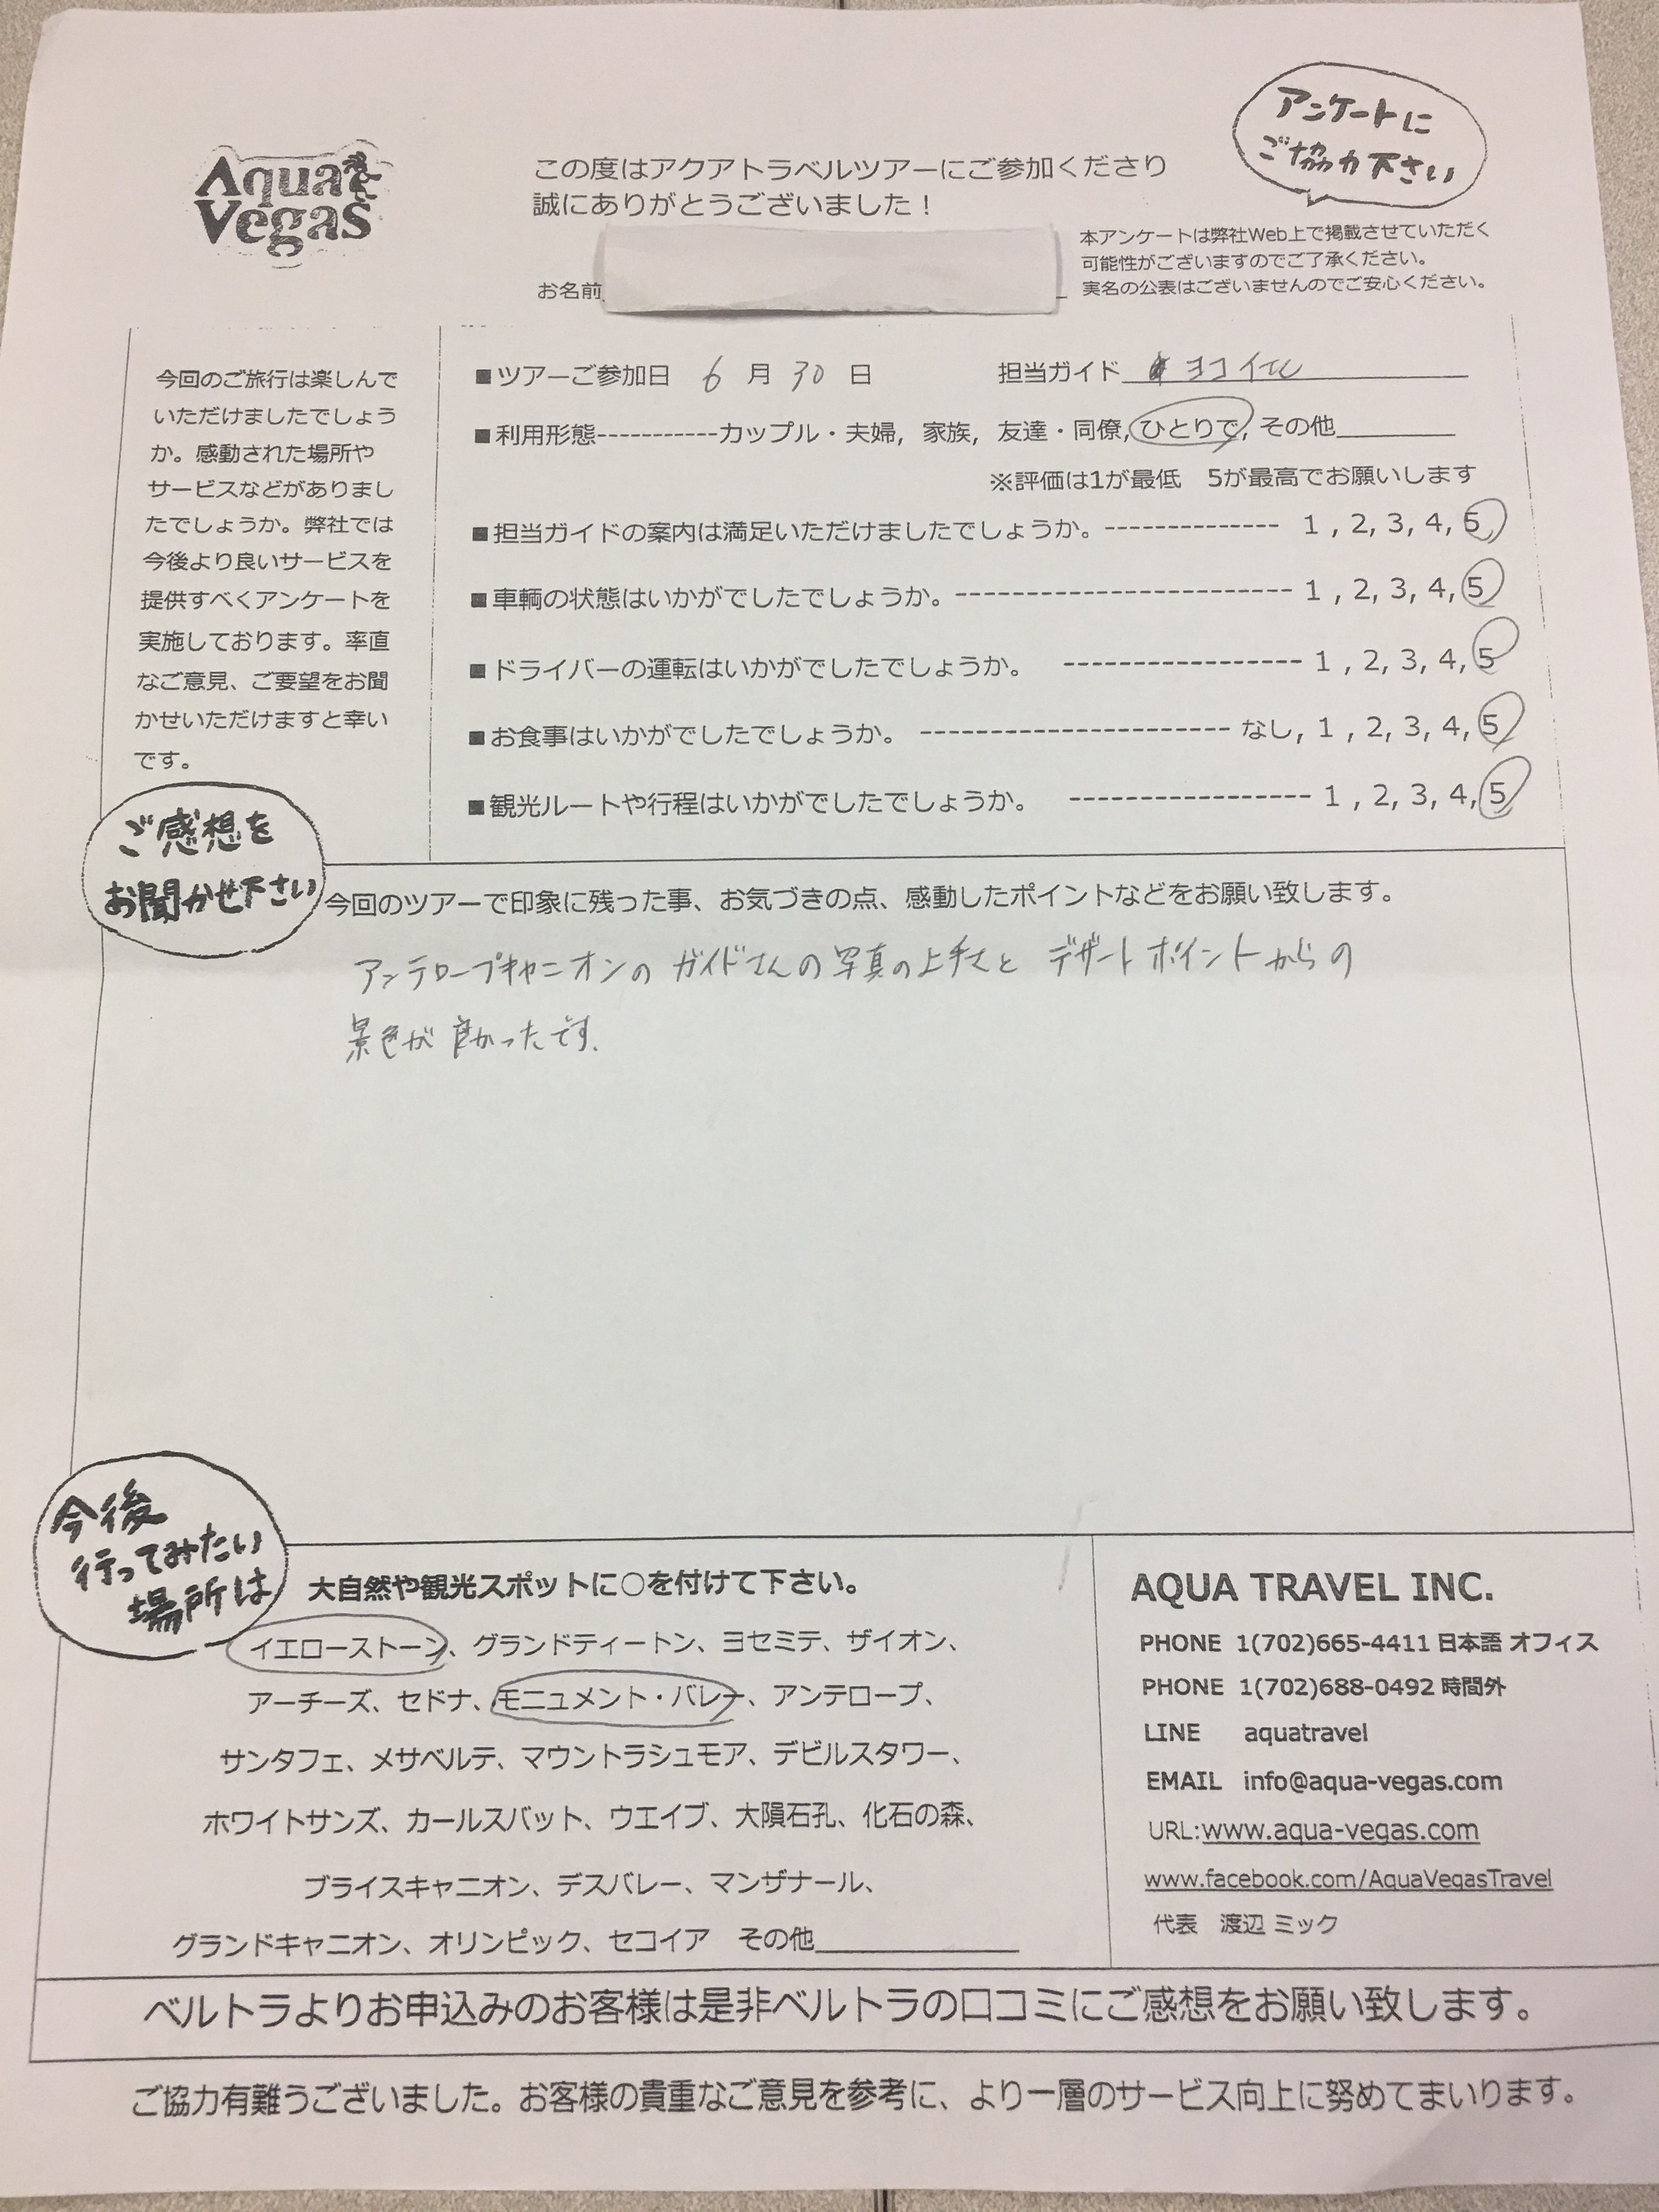 Aqua
Vegas
この度はアクアトラベルツアーにご参加くださり
誠にありがとうございました！
アンケートに
ご協力下さい
本アンケートは弊社Web上で掲載させていただく
可能性がございますのでご了承ください。
実名の公表はございませんのでご安心ください。
お名前
今回のご旅行は楽しんで
いただけましたでしょう
か。感動された場所や
サービスなどがありまし
たでしょうか。弊社では
今後より良いサービスを
提供すべくアンケートを
実施しております。率直
なご意見、ご要望をお聞
かせいただけますと幸い
です。
■ツアーご参加日 6 月 30 日 担当ガイド ヨコイ
■利用形態-----------カップル・夫婦, 家族, 友達・同僚, ひとりで, その他
※評価は1が最低 5が最高でお願いします
■担当ガイドの案内は満足いただけましたでしょうか。-------------- 1 , 2, 3, 4, 5
■車輌の状態はいかがでしたでしょうか。------------------------ 1 , 2, 3, 4, 5
■ドライバーの運転はいかがでしたでしょうか。 ----------------- 1 , 2, 3, 4, 5
■お食事はいかがでしたでしょうか。 ---------------------- なし, 1 , 2, 3, 4, 5
■観光ルートや行程はいかがでしたでしょうか。 ----------------- 1 , 2, 3, 4, 5
ご感想を
お聞かせ下さい
今回のツアーで印象に残った事、お気づきの点、感動したポイントなどをお願い致します。
アンテロープキャニオンの ガイドさんの写真の上手さと デザートポイントからの
景色が 良かったです.
今後
行ってみたい
場所は
大自然や観光スポットに○を付けて下さい。
イエローストーン、グランドティートン、ヨセミテ、ザイオン、
アーチーズ、セドナ、モニュメント・バレー、アンテロープ、
サンタフェ、メサベルテ、マウントラシュモア、デビルスタワー、
ホワイトサンズ、カールスバット、ウエイブ、大隕石孔、化石の森、
ブライスキャニオン、デスバレー、マンザナール、
グランドキャニオン、オリンピック、セコイア その他
AQUA TRAVEL INC.
PHONE 1(702)665-4411 日本語 オフィス
PHONE 1(702)688-0492 時間外
LINE aquatravel
EMAIL info@aqua-vegas.com
URL:www.aqua-vegas.com
www.facebook.com/AquaVegasTravel
代表 渡辺 ミック
ベルトラよりお申込みのお客様は是非ベルトラの口コミにご感想をお願い致します。
ご協力有難うございました。お客様の貴重なご意見を参考に、より一層のサービス向上に努めてまいります。